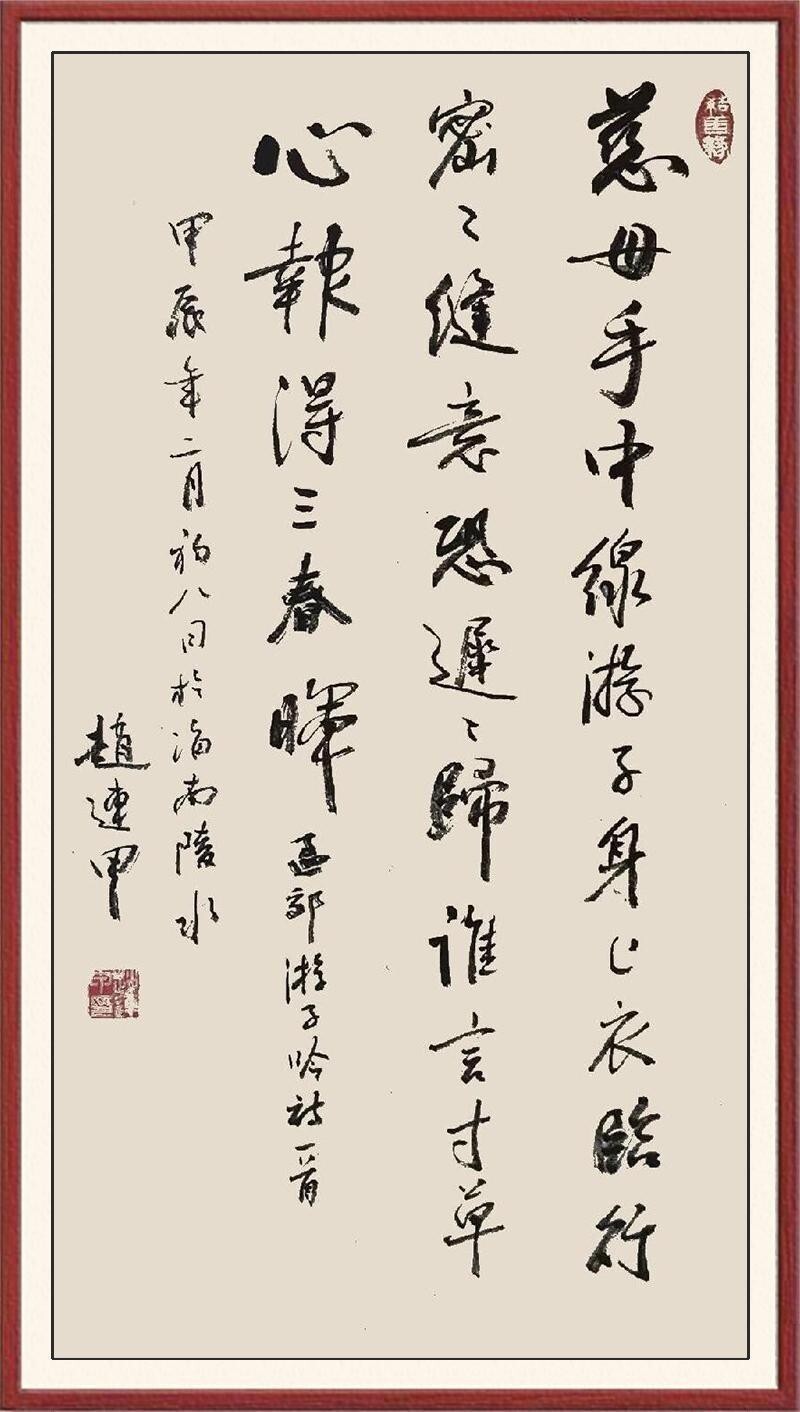 慈母手中線游子身上衣臨行
密〻縫意恐遲〻歸誰言寸草
心報得三春暉孟郊游子吟詩一首
甲辰年二月初八日於海南陵水
趙連甲